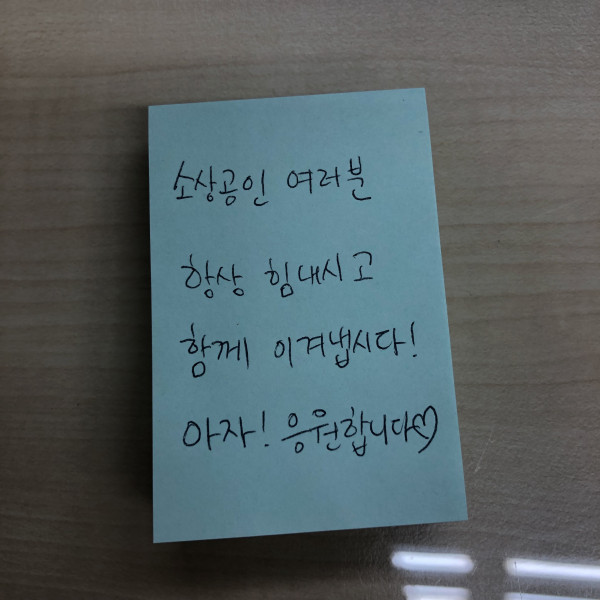 소상공인 여러분
항상 힘내시고
함께 이겨냅시다!
아자! 응원합니다♡